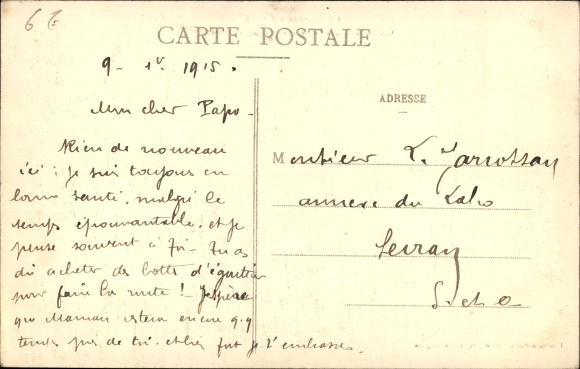 CARTE POSTALE
9 - 1r. 1915.
Mon cher Papo -
Rien de nouveau
ici ; je suis toujours en
bonne santé, malgré le
temps épouvantable, et je
pense souvent à Toi - Tu as
dû acheter des bottes d'égoutier
pour faire la route ! - J'espère
que Maman restera encore q.q
temps près de toi. et bien fort je t'embrasse.
ADRESSE
Monsieur L.
annexe du Labo
Sevran
S. et O